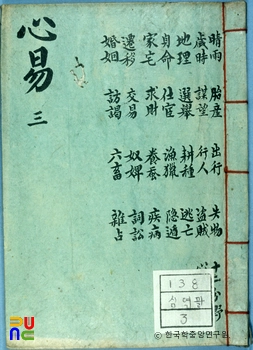 十二分野
晴雨 胎産 出行 失物
歲時 謀望 行人 盜賊
地理 選擧 耕種 逃亡
身命 仕宦 漁獵 隱遁
家宅 求財 養蚕 疾病
遷移 交易 奴婢 詞訟
婚姻 訪謁 六畜 雜占
心易 三
138
3
© 한국학중앙연구원